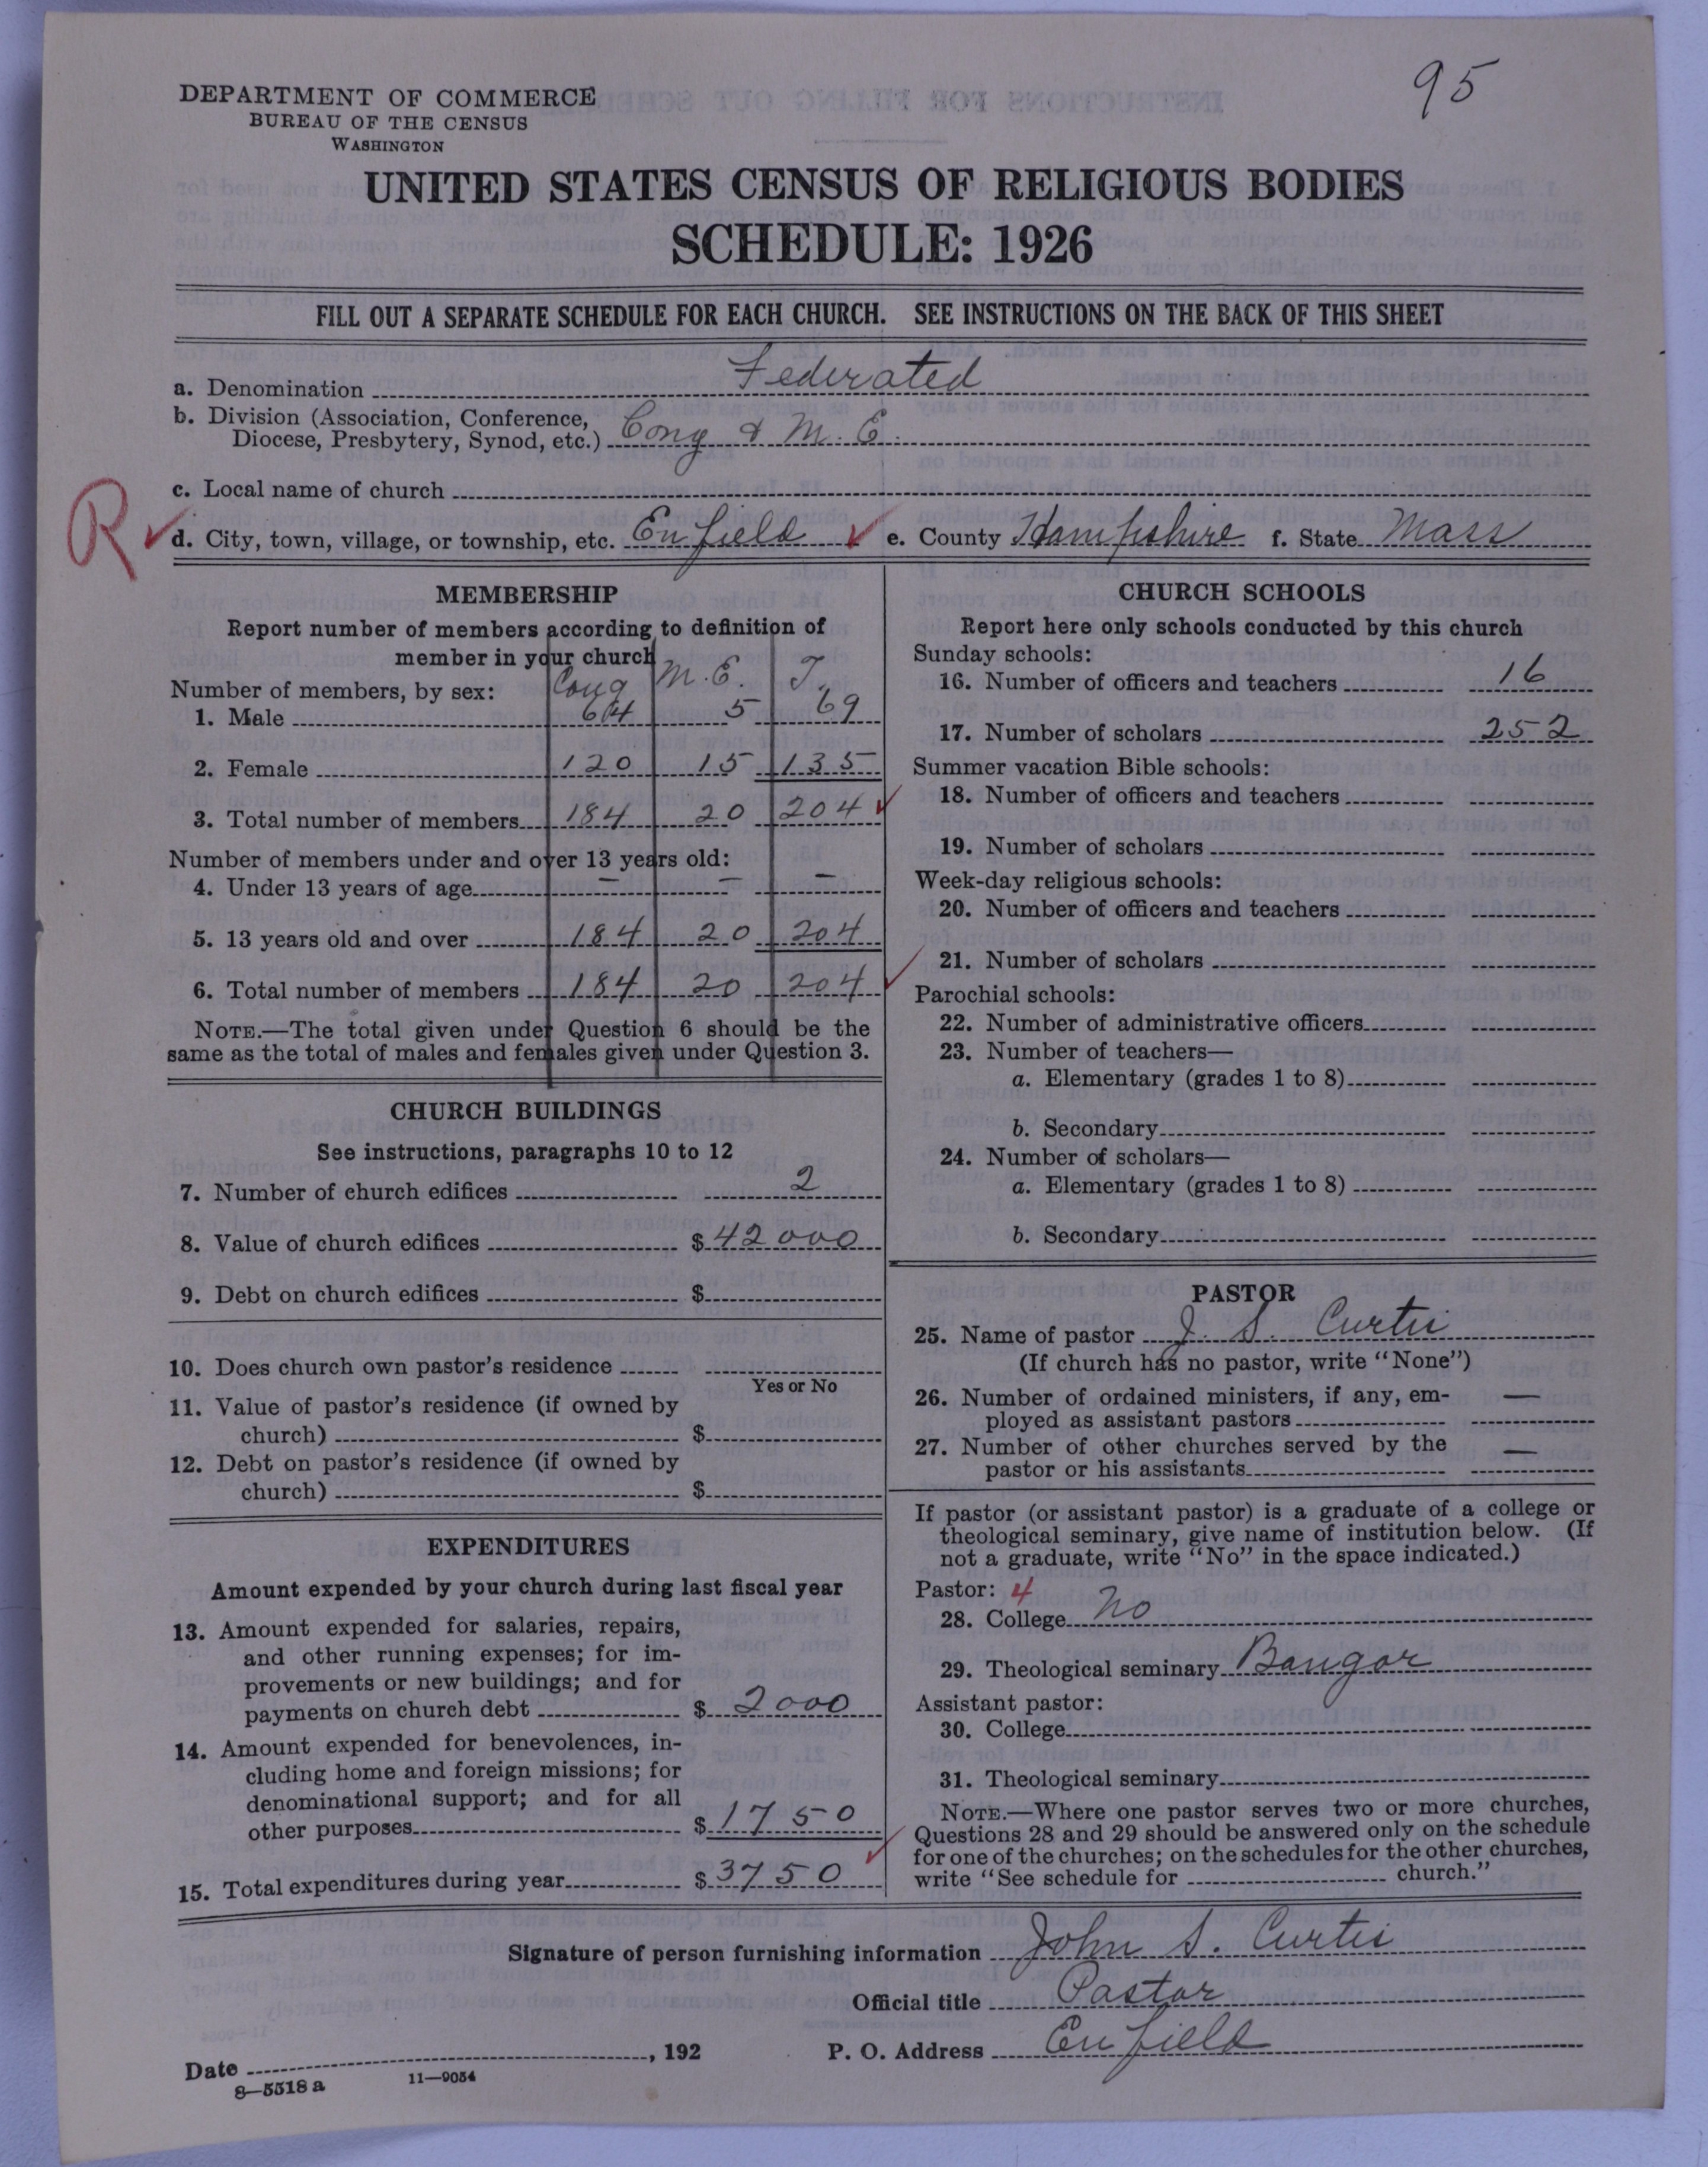 95
DEPARTMENT OF COMMERCE
BUREAU OF THE CENSUS
WASHINGTON
UNITED STATES CENSUS OF RELIGIOUS BODIES
SCHEDULE: 1926
FILL OUT A SEPARATE SCHEDULE FOR EACH CHURCH. SEE INSTRUCTIONS ON THE BACK OF THIS SHEET
a. Denomination Federated
b. Division (Association, Conference,
Diocese, Presbytery, Synod, etc.) Cong & M. E.
c. Local name of church
R
d. City, town, village, or township, etc. Enfield e. County Hampshire f. State Mass
MEMBERSHIP
Report number of members according to definition of
member in your church
Number of members, by sex: Cong M.E. T.
1. Male 64 5 69
2. Female 120 15 135
3. Total number of members 184 20 204
Number of members under and over 13 years old:
4. Under 13 years of age — — —
5. 13 years old and over 184 20 204
6. Total number of members 184 20 204
NOTE.—The total given under Question 6 should be the
same as the total of males and females given under Question 3.
CHURCH BUILDINGS
See instructions, paragraphs 10 to 12
7. Number of church edifices 2
8. Value of church edifices $ 42000
9. Debt on church edifices $
10. Does church own pastor's residence
Yes or No
11. Value of pastor's residence (if owned by
church) $
12. Debt on pastor's residence (if owned by
church) $
EXPENDITURES
Amount expended by your church during last fiscal year
13. Amount expended for salaries, repairs,
and other running expenses; for im-
provements or new buildings; and for
payments on church debt $ 2000
14. Amount expended for benevolences, in-
cluding home and foreign missions; for
denominational support; and for all
other purposes $ 1750
15. Total expenditures during year $ 3750
CHURCH SCHOOLS
Report here only schools conducted by this church
Sunday schools:
16. Number of officers and teachers 16
17. Number of scholars 252
Summer vacation Bible schools:
18. Number of officers and teachers
19. Number of scholars
Week-day religious schools:
20. Number of officers and teachers
21. Number of scholars
Parochial schools:
22. Number of administrative officers
23. Number of teachers—
a. Elementary (grades 1 to 8)
b. Secondary
24. Number of scholars—
a. Elementary (grades 1 to 8)
b. Secondary
PASTOR
25. Name of pastor J. S. Curtis
(If church has no pastor, write "None")
26. Number of ordained ministers, if any, em-
ployed as assistant pastors —
27. Number of other churches served by the
pastor or his assistants —
If pastor (or assistant pastor) is a graduate of a college or
theological seminary, give name of institution below. (If
not a graduate, write "No" in the space indicated.)
Pastor: 4
28. College No
29. Theological seminary Bangor
Assistant pastor:
30. College
31. Theological seminary
NOTE.—Where one pastor serves two or more churches,
Questions 28 and 29 should be answered only on the schedule
for one of the churches; on the schedules for the other churches,
write "See schedule for church."
Signature of person furnishing information John S. Curtis
Official title Pastor
Date , 192 P. O. Address Enfield
8—5518 a 11—9054